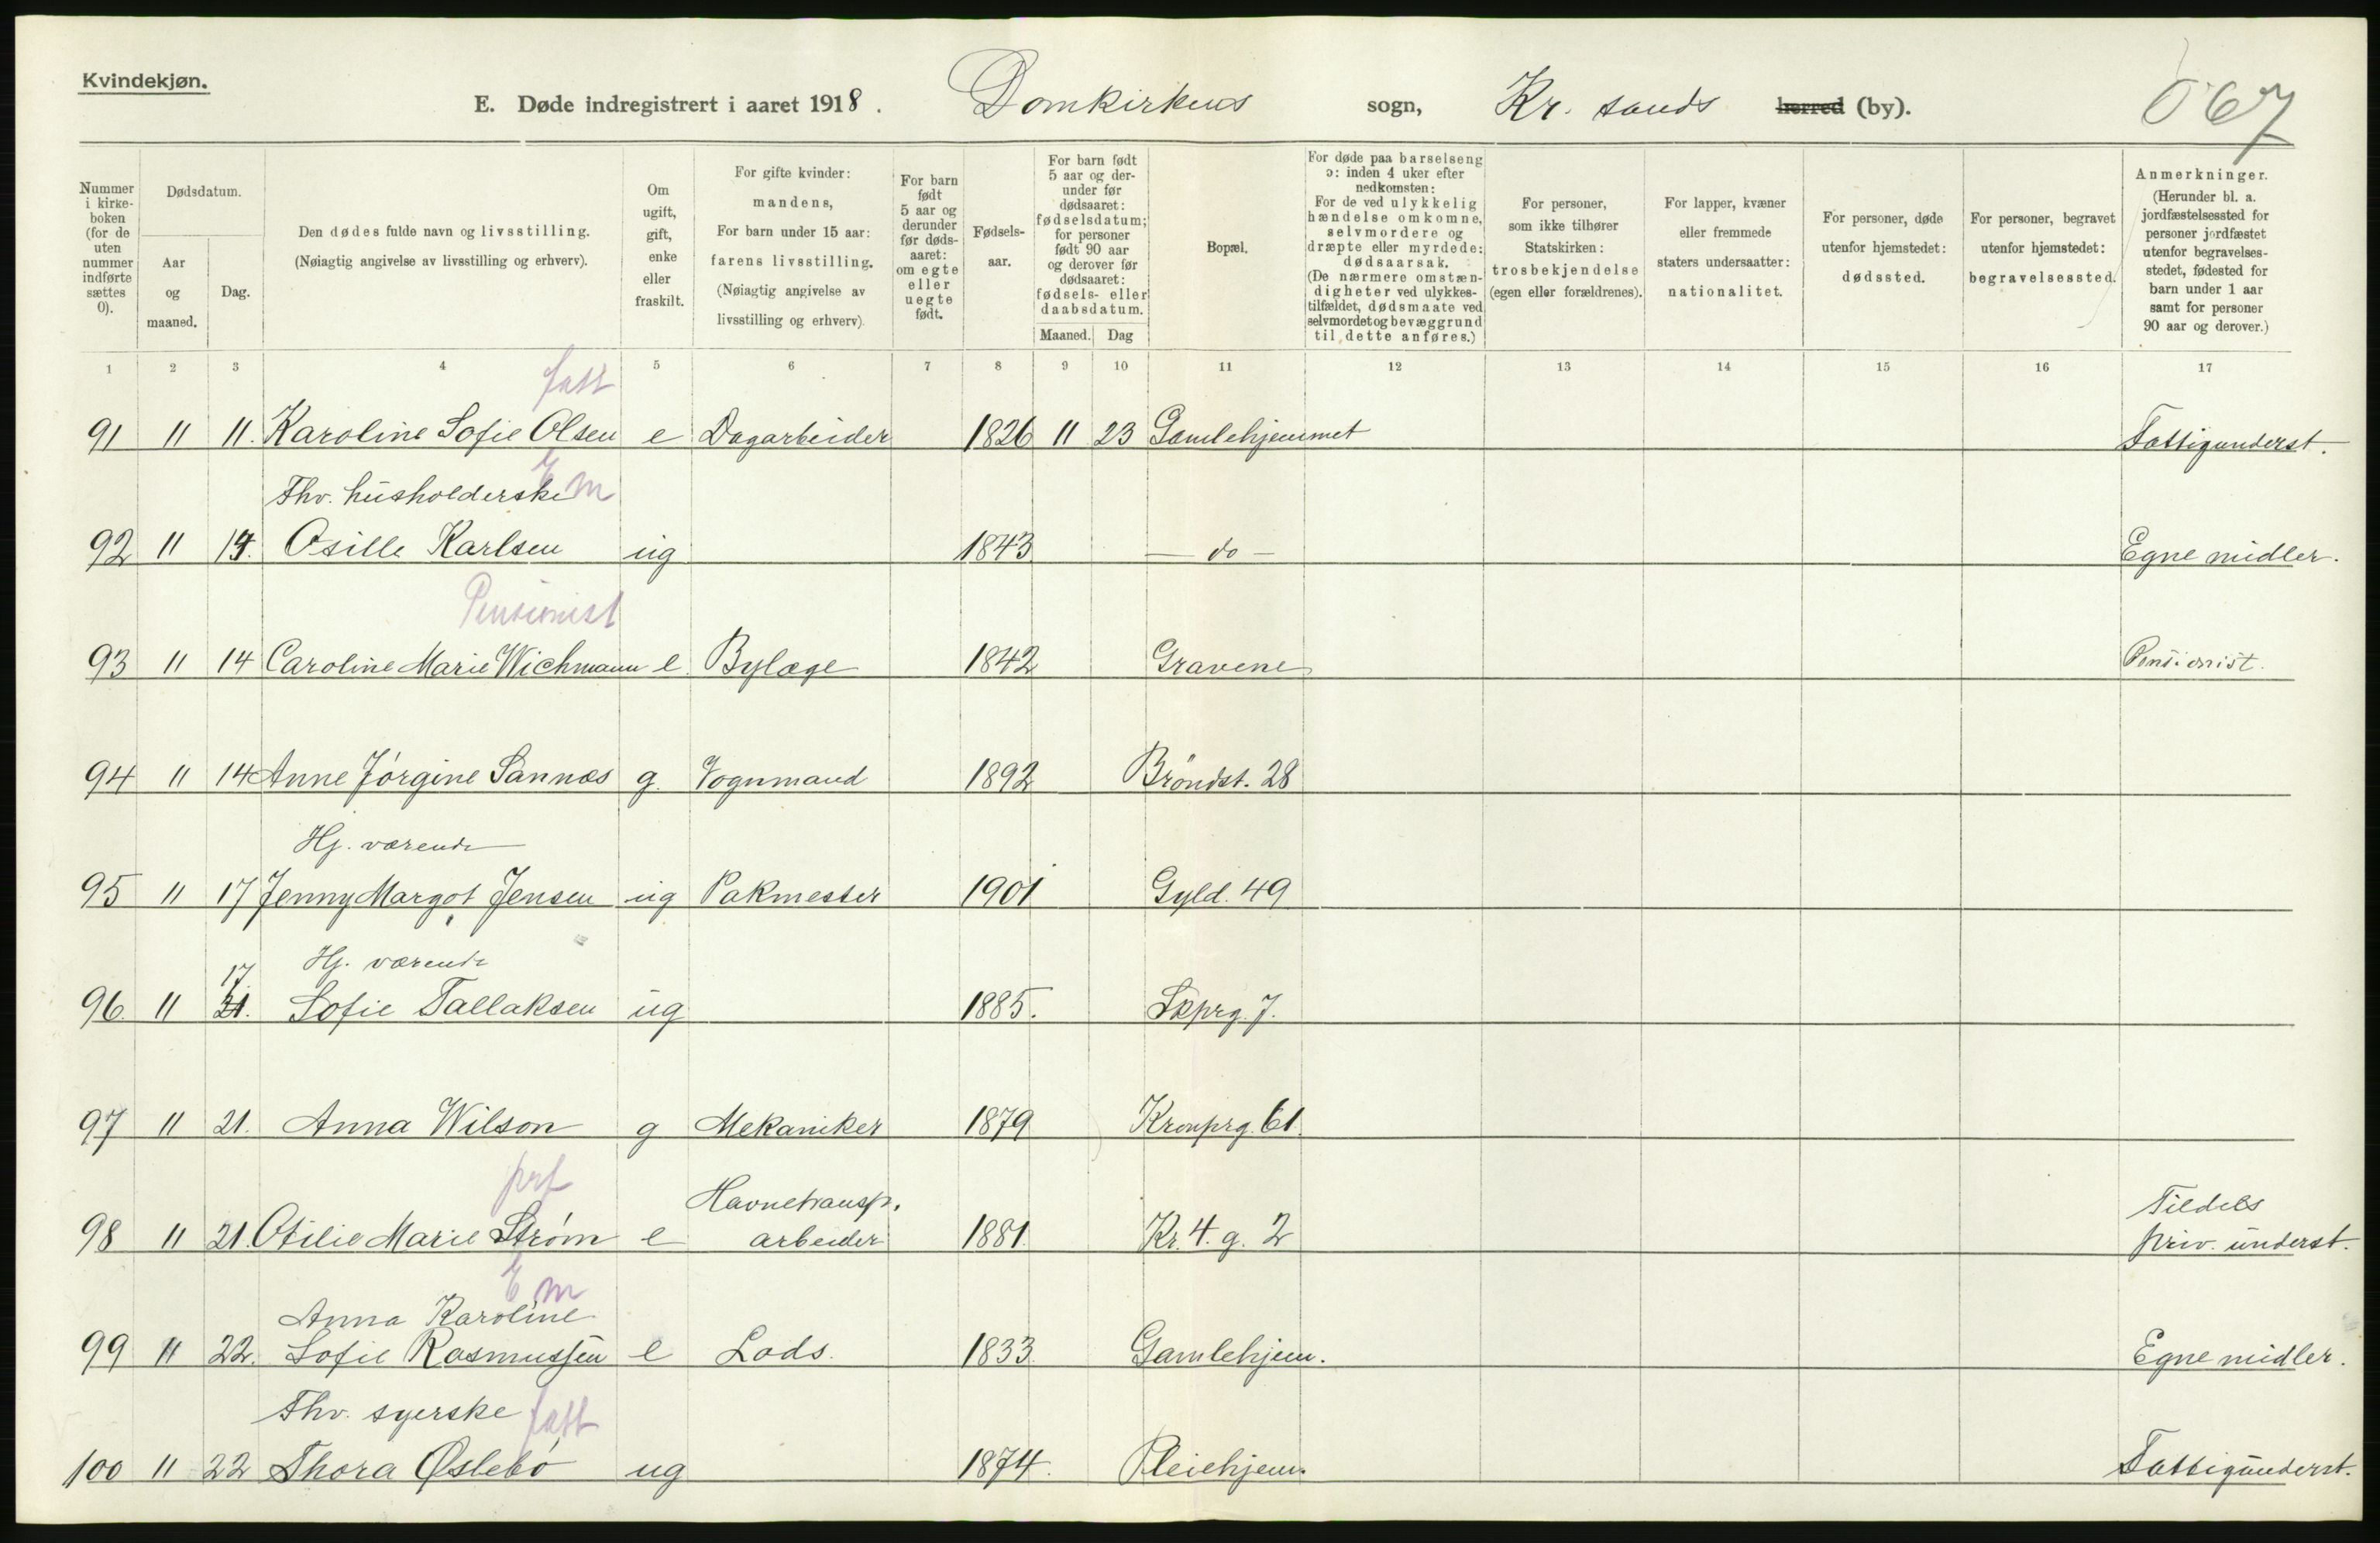 Kvindekjøn.
E. Døde indregistrert i aaret 1918. Domkirkens sogn, Kr. sands herred (by). 067
Nummer i kirkeboken (for de uten nummer indførte sættes 0).
Dødsdatum.
Aar og maaned.
Dag.
Den dødes fulde navn og livsstilling.
(Nøiagtig angivelse av livsstilling og erhverv).
Om ugift, gift, enke eller fraskilt.
For gifte kvinder: mandens, For barn under 15 aar: farens livsstilling. (Nøiagtig angivelse av livsstilling og erhverv).
For barn født 5 aar og derunder før dødsaaret: om egte eller uegte født.
Fødselsaar.
For barn født 5 aar og derunder før dødsaaret: fødselsdatum; for personer født 90 aar og derover før dødsaaret: fødsels- eller daabsdatum.
Maaned. Dag
Bopæl.
For døde paa barselseng ɔ: inden 4 uker efter nedkomsten: For de ved ulykkelig hændelse omkomne, selvmordere og dræpte eller myrdede: dødsaarsak. (De nærmere omstændigheter ved ulykkestilfældet, dødsmaate ved selvmordet og bevæggrund til dette anføres.)
For personer, som ikke tilhører Statskirken: trosbekjendelse (egen eller forældrenes).
For lapper, kvæner eller fremmede staters undersaatter: nationalitet.
For personer, døde utenfor hjemstedet: dødssted.
For personer, begravet utenfor hjemstedet: begravelsessted.
Anmerkninger. (Herunder bl. a. jordfæstelsessted for personer jordfæstet utenfor begravelsesstedet, fødested for barn under 1 aar samt for personer 90 aar og derover.)
1 2 3 4 5 6 7 8 9 10 11 12 13 14 15 16 17
fatt
91 11 11. Karoline Sofie Olsen e Dagarbeider 1826 11 23 Gamlehjemmet Fattigunderst.
Fhv. husholderske E m
92 11 14. Osille Karlsen ug 1843 — do — Egne midler.
Pensionist
93 11 14 Caroline Marie Wichmann e Bylæge 1842 Gravene Pensionist.
94 11 14 Anne Jörgine Sannæs g. Vognmand 1892 Bröndst. 28
Hj. værende
95 11 17 Jenny Margot Jensen ug Pakmester 1901 Gyld. 49
17 Hj. værende
96. 11 21. Sofie Tallaksen ug 1885. Skprg. 7.
97 11 21. Anna Wilson g Mekaniker 1879 Kronprg. 61.
prf Havnetransp. Tildels
98 11 21. Otilie Marie Strøm e arbeider 1881. Kr. 4. g. 2 priv. underst.
E m
Anna Karoline
99 11 22. Sofie Rasmussen e Lods. 1833 Gamlehjem. Egne midler.
Fhv. syerske fatt
100 11 22 Thora Øslebö ug 1874. Pleiehjem. Fattigunderst.